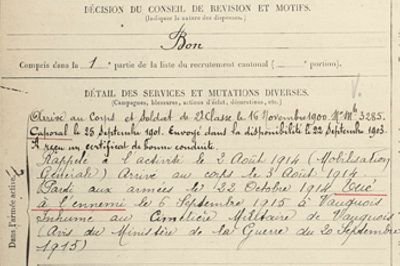 DÉCISION DU CONSEIL DE REVISION ET MOTIFS.
(Indiquer la nature des dispenses.)
Bon
Compris dans la 1e partie de la liste du recrutement cantonal ( portion).
DÉTAIL DES SERVICES ET MUTATIONS DIVERSES.
(Campagnes, blessures, actions d'éclat, décorations, etc.)
Arrivé au Corps et Soldat de 2e Classe le 16 Novembre 1900. No Mle 3285.
Caporal le 25 Septembre 1901. Envoyé dans la disponibilité le 22 Septembre 1903.
A reçu un certificat de bonne conduite.
Rappelé à l'activité le 2 Août 1914 (Mobilisation
Générale) Arrivé au corps le 3 Août 1914
Parti aux armées le 22 Octobre 1914 Tué
à l'ennemi le 6 Septembre 1915 à Vauquois
Inhumé au Cimetière Militaire de Vauquois
(Avis du Ministère de la Guerre du 20 Septembre
1915)
Dans l'armée active